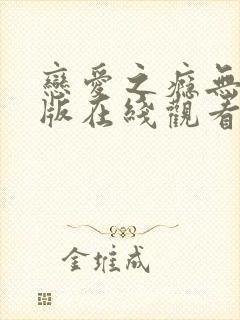 戀愛之癮無
版在綫觀看
金堆成